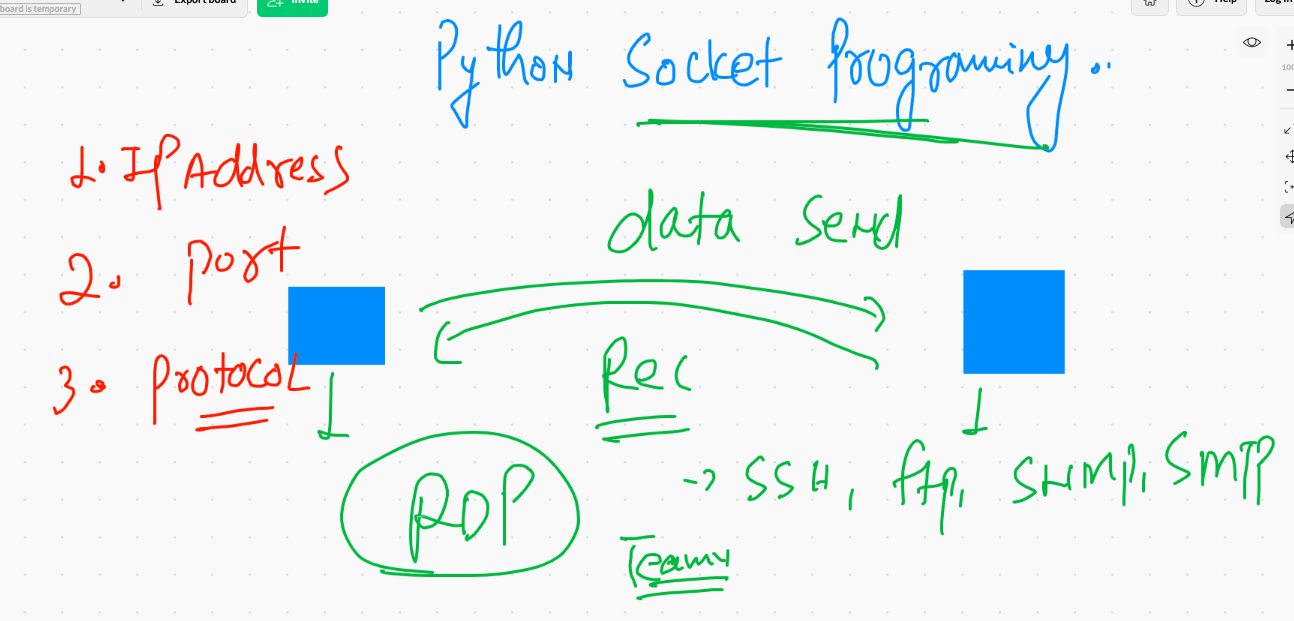 board is temporary
Export board
Invite
Help
Log in
Python Socket Programing..
1. IP Address
2. Port
3. Protocol
data Send
Rec
RDP
-> SSH, ftp, SNMP, SMTP